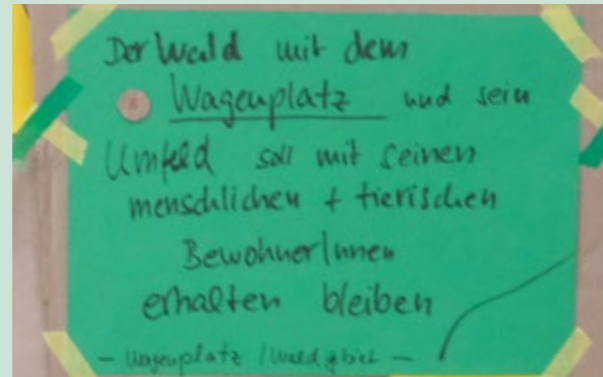 Der Wald mit dem
Wagenplatz und sein
Umfeld soll mit seinen
menschlichen + tierischen
BewohnerInnen
erhalten bleiben
- Wagenplatz / Waldgebiet -